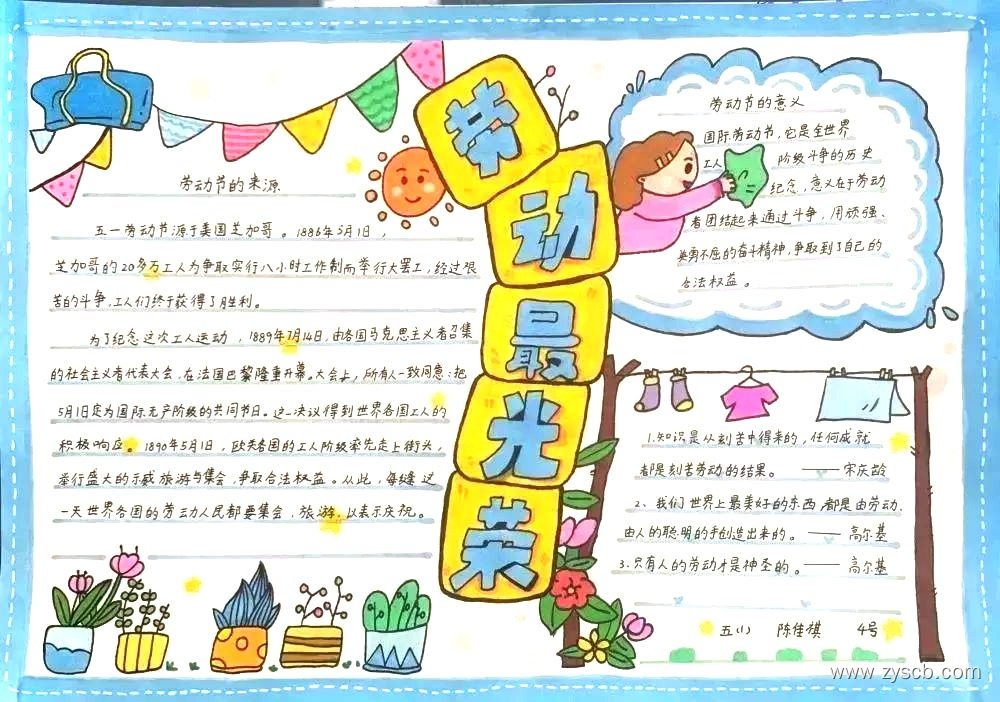 劳动最光荣
劳动节的来源
五一劳动节源于美国芝加哥。1886年5月1日,
芝加哥的20多万工人为争取实行八小时工作制而举行大罢工,经过艰
苦的斗争,工人们终于获得了胜利。
为了纪念这次工人运动,1889年7月14日,由各国马克思主义者召集
的社会主义者代表大会,在法国巴黎隆重开幕。大会上,所有人一致同意:把
5月1日定为国际无产阶级的共同节日。这一决议得到世界各国工人的
积极响应。1890年5月1日,欧美各国的工人阶级率先走上街头,
举行盛大的示威旅游与集会,争取合法权益。从此,每逢这
一天世界各国的劳动人民都要集会,旅游,以表示庆祝。
劳动节的意义
国际劳动节,它是全世界
工人 阶级斗争的历史
纪念,意义在于劳动
者团结起来通过斗争,用顽强、
英勇不屈的奋斗精神,争取到了自己的
合法权益。
1.知识是从刻苦中得来的,任何成就
都是刻苦劳动的结果。——宋庆龄
2、我们世界上最美好的东西,都是由劳动、
由人的聪明的手创造出来的。——高尔基
3.只有人的劳动才是神圣的。——高尔基
五(1) 陈佳祺 4号
www.zyscb.com